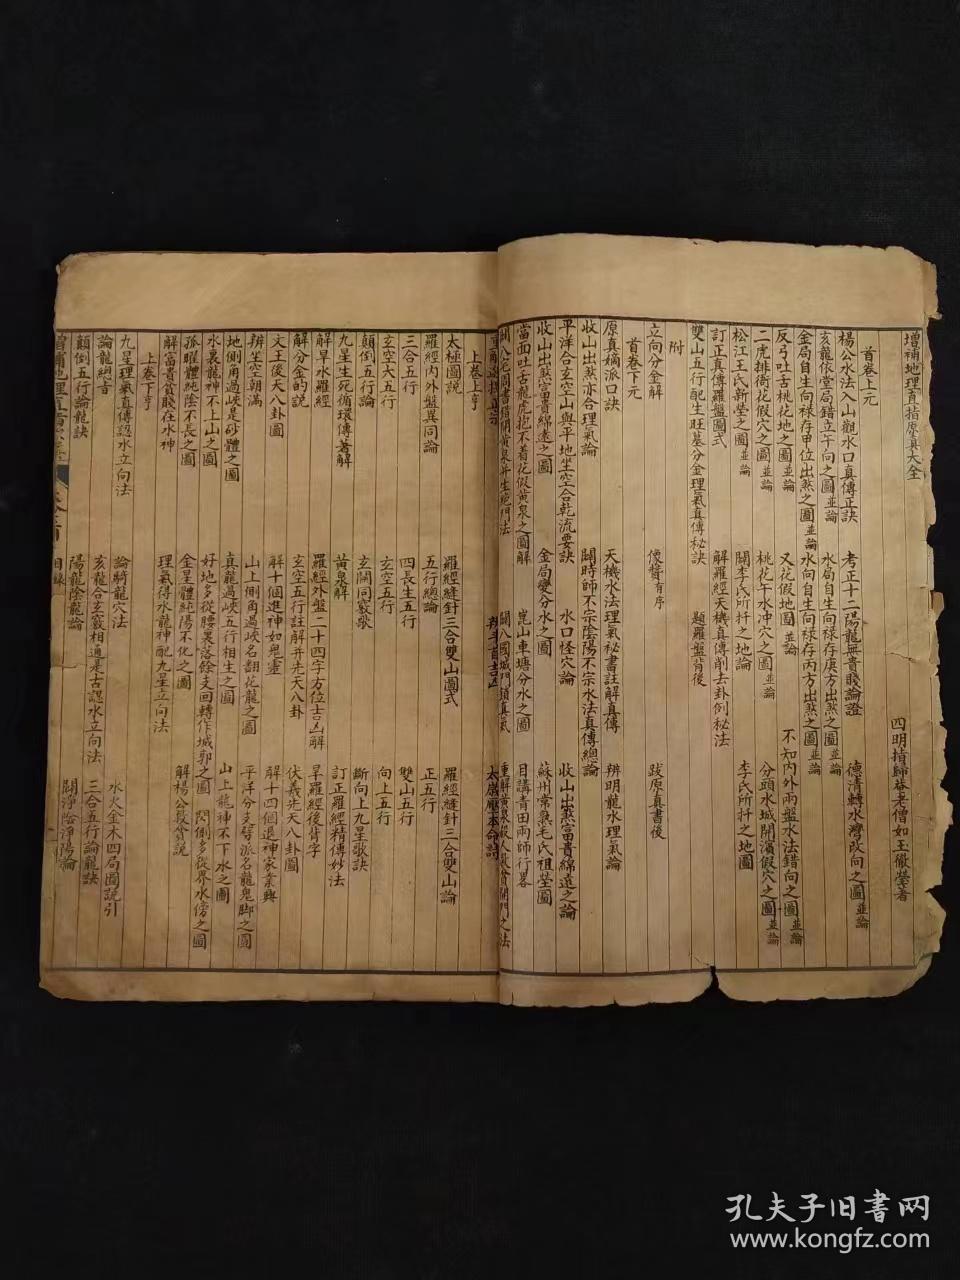 增補地理直指原真大全
四明掯歸菴老僧如玉徹瑩著
首卷上元
楊公水法入山觀水口真傳正訣 考正十二陽龍無貴賤論證 德清轉水灣改向之圖並論
亥龍依堂局錯立午向之圖並論 水局自生向祿存庚方出煞之圖並論
金局自生向祿存甲位出煞之圖 水向自生向祿存丙方出煞之圖並論
反弓吐舌桃花地之圖並論 又花假地圖並論 不知內外兩盤水法錯向之圖並論
二虎排衙花假穴之圖並論 桃花午水冲穴之圖並論 分頭水城開濱假穴之圖並論
松江王氏新塋之圖並論 關李氏所扦之地圖 李氏所扦之地圖
訂正真傳羅盤圖式 解羅經天機真傳削去卦例秘法
雙山五行配生旺墓分金理氣真傳秘訣 題羅盤背後
附
立向分金解 懷贊有序 跋原真書後
首卷下元
原真嫡派口訣 天機水法理氣秘書註解真傳 辨明龍水理氣論
收山出煞亦合理氣論 闢時師不宗陰陽不宗水法真傳總論
平洋合玄空山與平地坐空合乾流要訣 水口怪穴論 收山出煞富貴綿遠之論
收山出煞富貴綿遠之圖 金局變分水之圖 蘇州常熟毛氏祖塋圖
當面吐舌龍虎抱不着花假黃泉之圖解 崑山車塘分水之圖 目講青田兩師行畧
上卷上亨
太極圖說 羅經縫針三合雙山圖式 羅經縫針三合雙山論
羅經內外盤異同論 五行總論 正五行
三合五行 四長生五行 雙山五行
玄空大五行 玄空五行 向上五行
顛倒五行論 玄關同竅歌 斷向上九星歌訣
九星生死循環傳著解 黃泉解 訂正羅經精傳妙法
解旱水羅經 羅經外盤二十四字方位吉凶解 旱羅經後背字
解分金的說 玄空五行註解并先天八卦 伏羲先天八卦圖
文王後天八卦圖 解十個進神如鬼靈 解十四個退神家業興
辨坐空朝滿 山上側角過峽名翻花龍之圖 平洋分支劈派名龍鬼脚之圖
地側角過峽是砂體之圖 真龍過峽五行相生之圖 山上龍神不下水之圖
水裏龍神不上山之圖 好地多從腰裏落餘支回轉作城郭之圖 閃倒多從界水傍之圖
孤曜體純陰不長之圖 金星體純陽不化之圖 解楊公救貧說
解富貴貧賤在水神 理氣得水龍神配九星立向法
上卷下亨
九星理氣真傳認水立向法 論騎龍穴法 水火金木四局圖說引
論龍總旨 亥龍合玄竅相通是古認水立向法 三合五行論龍訣
顛倒五行論龍訣 陽龍陰龍論 闢淨陰淨陽論
目錄
孔夫子旧书网
www.kongfz.com